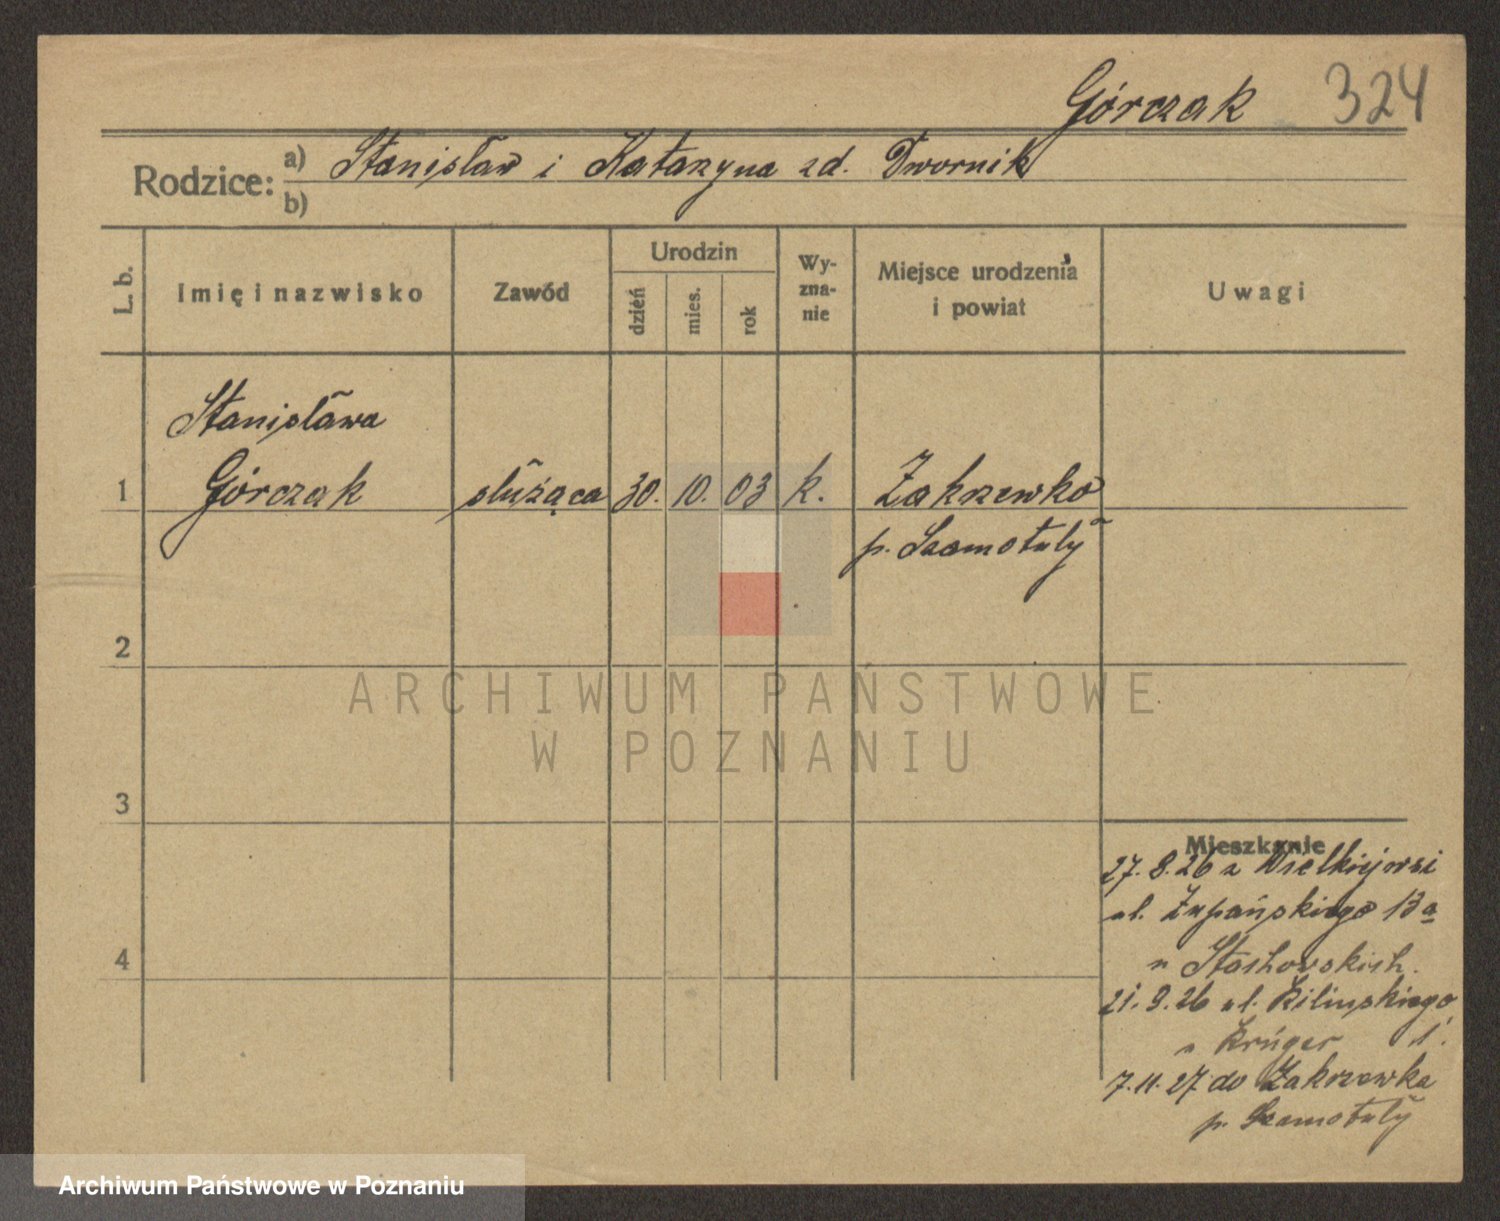 Górczak 324
Rodzice: a) Stanisław i Katarzyna zd. Dwornik
b)
L. b.
Imię i nazwisko
Zawód
Urodzin
dzień
mies.
rok
Wy-
zna-
nie
Miejsce urodzenia
i powiat
Uwagi
Stanisława
1 Górczak służąca 30. 10. 03 k. Zakrzewko
p. Szamotuły
2
ARCHIWUM PAŃSTWOWE
W POZNANIU
3
Mieszkanie
27. 8. 26 z Wielkiejwsi
ul. Żupańskiego 13a
4
u
21. 9. 26 ul. Kilińskiego
u Krüger 1.
7. 11. 27 do Zakrzewka
p. Szamotuły
Archiwum Państwowe w Poznaniu